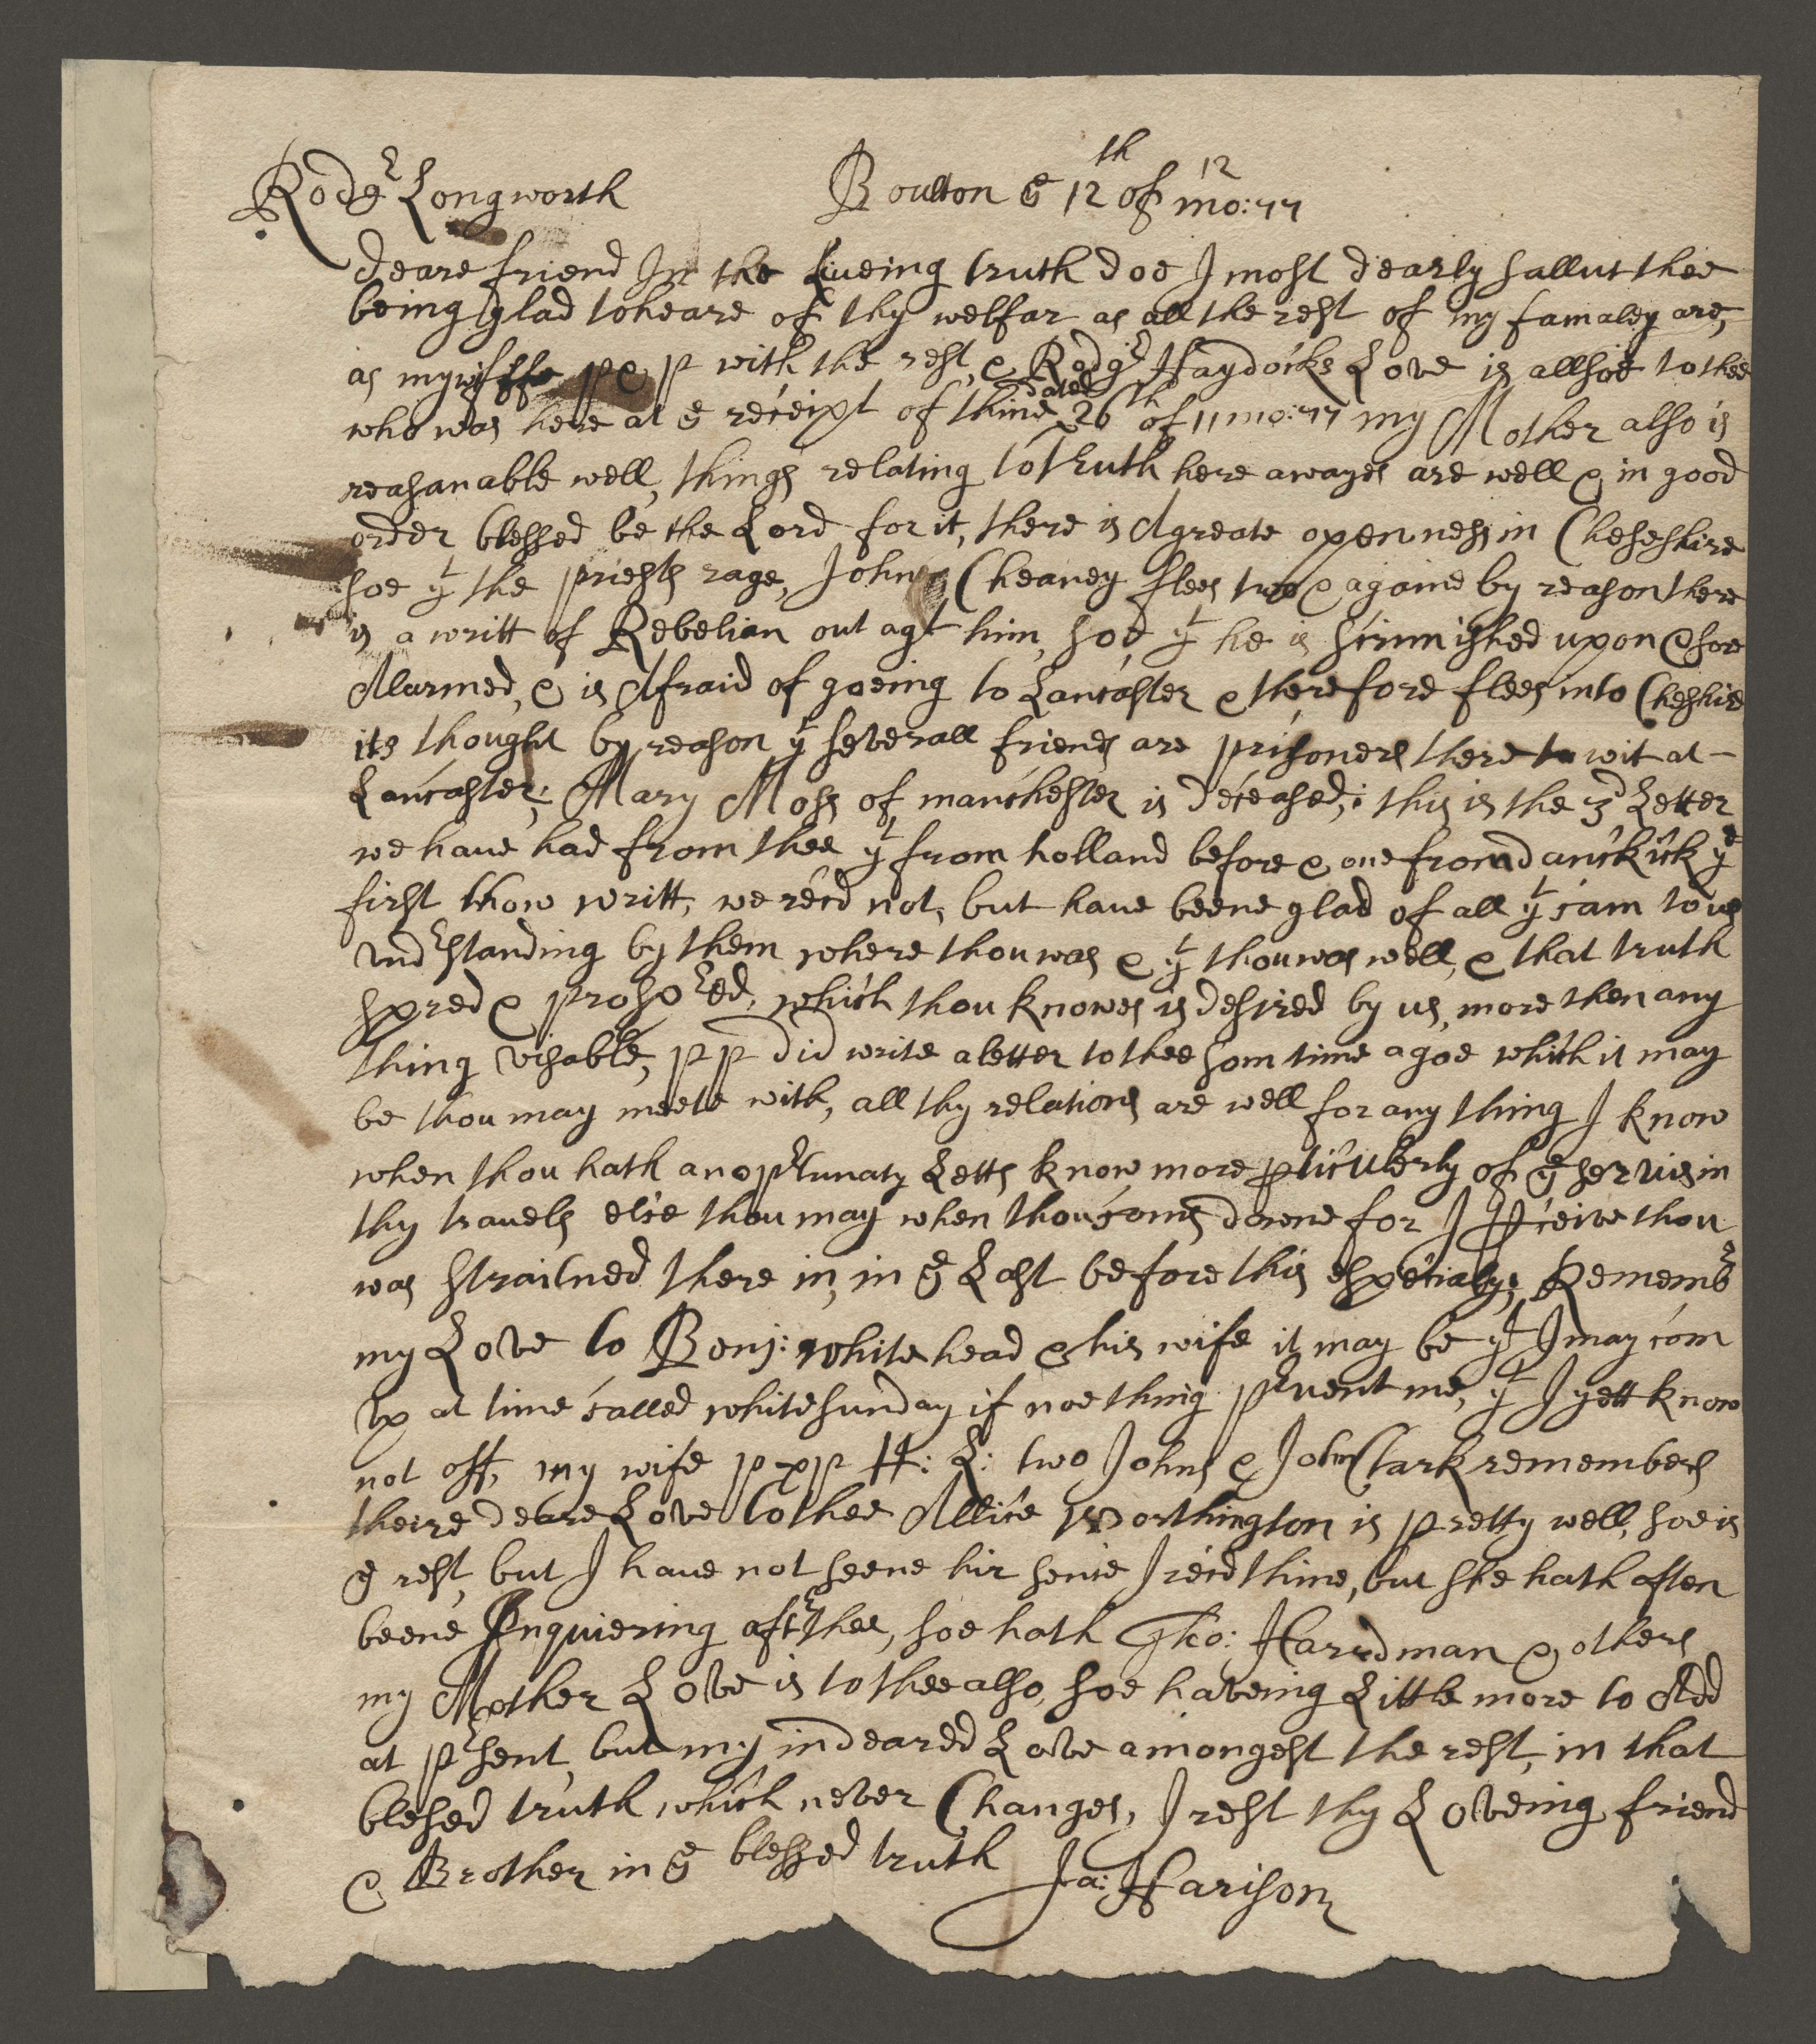 Rodgr Longworth Boulton ye 12th of 12 mo: 77
deare friend In the Liveing truth doe I most dearly sallut thee
being glad to heare of thy welfar as all the rest of my famaley are,
as my wiffe p & p with the rest, & Rodgr Haydocks Love is allsoe to thee
who was here at ye receipt of thine dated 26th of 11 mo: 77 my Mother also is
reasanable well, things relating to truth here awayes are well & in good
order blessed be the Lord for it, there is A greate openness in Cheseshire
soe yt the priests rage, John Cheaney flees two & againe by reason there
is a writt of Rebelian out agt him, soe yt he is scrimished upon & sore
Alarmed, & is Afraid of goeing to Lancaster & therefore flees into Cheshire
its thought by reason yt severall friends are prisoners there to wit at -
Lancaster; Mary Moss of manchester is deceased; this is the 3d Letter
we have had from thee yt from holland before & one from danckick ye
first thow writt, we recd not, but have beene glad of all yt cam to us
Vndrstanding by them where thou was & yt thou was well, & that truth
spred & prospred, which thou knowes is desired by us, more then any
thing visable, p p did write a letter to thee som time agoe which it may
be thou may meete with, all thy relations are well for any thing I know
when thou hath an oprtunaty Letts know more pticulerly of ye servis in
thy travels else thou may when thou coms downe for I pceive thou
was straitned there in, in ye Last before this especialy; Remembr
my Love to Benj: whitehead & his wife it may be yt I may com
Vp at time called whitesunday if noe thing prvent me, yt I yett know
not off, my wife p & p H: L: two Johns & John Clark remembers
theire deare Love to thee Allice Worthington is pretty well, soe is
ye rest, but I have not seene hir sence I recd thine, but she hath often
beene Inquiering aftr thee, soe hath Tho: Hardman & others
my Mother Love is to thee also, soe haveing Little more to Add
at prsent, but my indeared Love amongest the rest, in that
blesed truth which never Changes, I rest thy Loveing friend
& Brother in ye blessed truth Ja: Harison